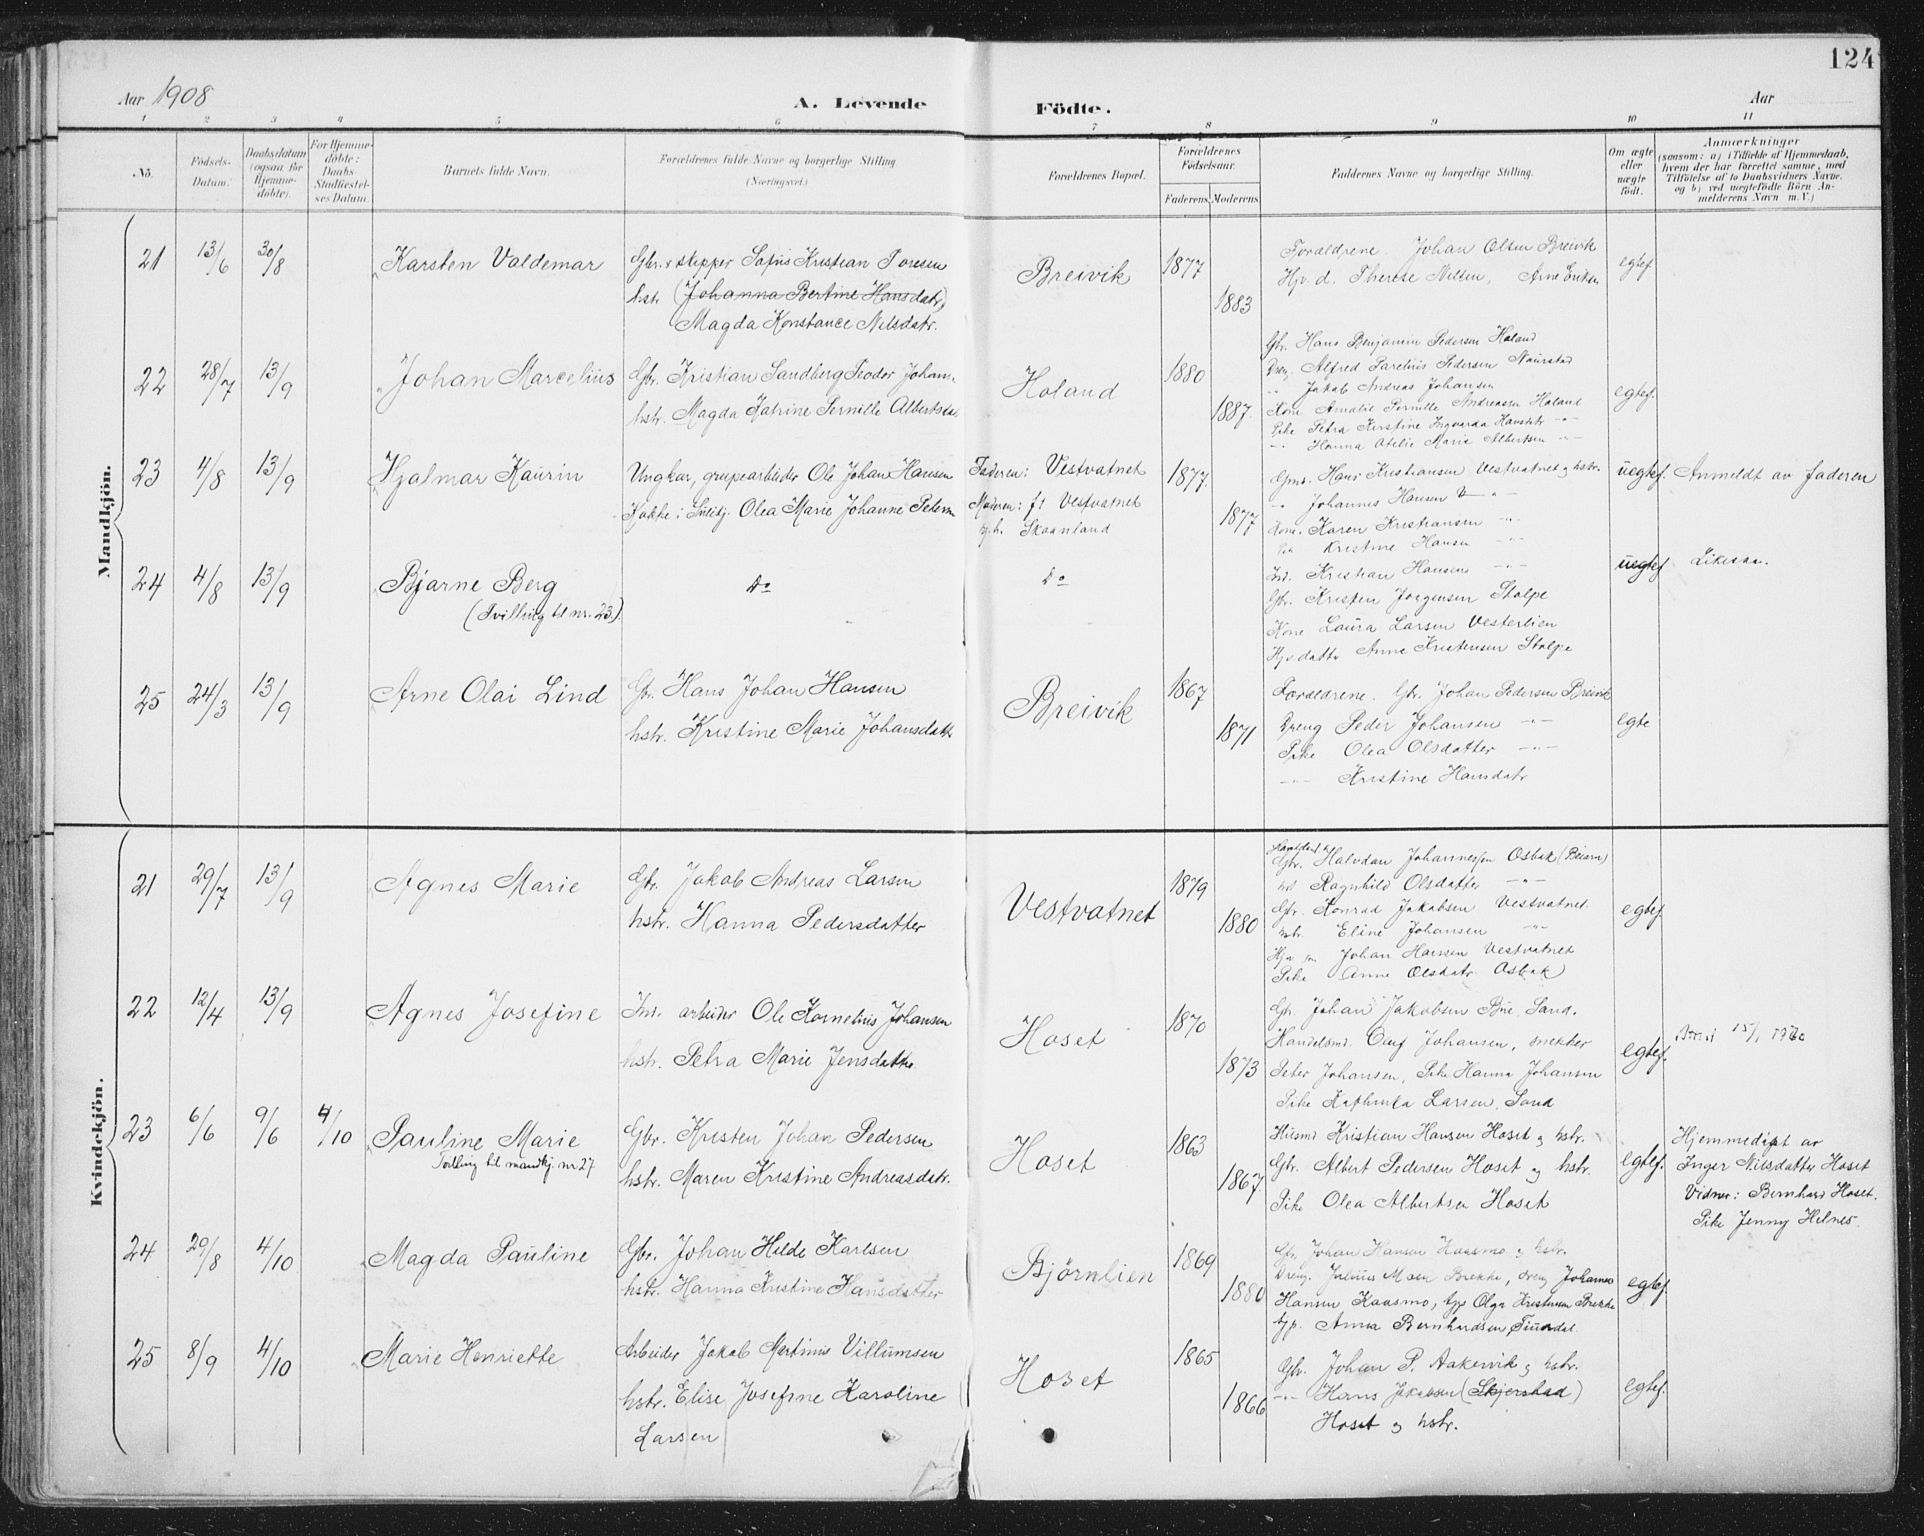 124
Aar 1908
A. Levende
Födte.
Aar
1 2 3 4 5 6 7 8 9 10 11
No.
Födsels-
Datum.
Daabsdatum
(ogsaa for
Hjemme-
döbte).
For Hjemme-
döbte:
Daabs
Stadfæstel-
ses Datum.
Barnets fulde Navn.
Forældrenes fulde Navne og borgerlige Stilling
(Næringsvei.)
Forældrenes Bopæl.
Forældrenes
Födselsaar.
Faderens.
Moderens.
Faddernes Navne og borgerlige Stilling.
Om ægte
eller
uægte
født.
Anmærkninger
(saasom: a) i Tilfælde af Hjemmedaab,
hvem der har forrettet samme, med
Tilföielse af to Daabsvidners Navne,
og b) ved uægtefödte Börn An-
melderens Navn m. V.)
Mandkjön.
21 13/6 30/8 Karsten Valdemar
Gbr. skepper Sofus Kristian Toresen
hstr. (Johanna Bertine Hansdatr)
Magda Konstance Nilsdatr.
Breivik 1877 1883
Foraldrene. Johan Olsen Breivik
Hjv. d. Therese Nilsen, Arne Eriksen
egtef
22 28/7 13/9 Johan Marcelius
Gbr. Kristian Sandberg Teodor Johans.
hstr. Magda Katrine Pernille Albertsdat.
Holand 1880 1887.
Gbr. Hans Benjamin Pedersen Holand
Dreng. Alfred Parelius Pedersen Naurstad
Jakob Andreas Johansen
Kone Amalie Pernille Andreassen Holand
Pike Petra Kirstine Ingvarda Hansdtr
Hanna Otelie Marie Albertsen
egtef.
23 4/8 13/9 Hjalmar Kaurin
Ungkar, grupearbeider Ole Johan Hansen
Kokke i Sulitj. Olea Marie Johanne Petersen
Faderen: Vestvatnet
Moderen: ft Vestvatnet
Skaanland
1877. 1877
Gms. Hans Kristiansen Vestvatnet og hstr.
Johannes Hansen
Kone. Karen Kristiansen
Kristine Hansen
uegtef. Anmeldt av faderen
24 4/8 13/9 Bjarne Berg
(Tvilling til nr. 23).
do do
Ind. Kristian Hansen
Gbr. Kristen Jørgensen Stolpe
Kone Laura Larsen Vesterlien
Hjv datter Anne Kristensen Stolpe
uegtef Likesaa.
25 24/3 13/9 Arne Olai Lind
Gbr. Hans Johan Hansen
hstr. Kristine Marie Johansdatter
Breivik 1867 1871
Foraldrene. Gbr. Johan Pedersen Breivik
Dreng Peder Johansen
Pike Olea Olsdatter
Kristine Hansdatr
egte
Kvindekjön.
21 29/7 13/9 Agnes Marie
Gbr. Jakob Andreas Larsen
hstr. Hanna Pedersdatter
Vestvatnet 1879 1880
Gbr. Halvdan Johannessen Osbak (Beiarn)
Ragnhild Olsdatter
Gbr. Konrad Jakobsen Vestvatnet
hstr. Eline Johansen
Hjv. søn Johan Hansen Vestvatnet
Pike Anne Olsdatr. Osbak
egtef.
22 12/4 13/9 Agnes Josefine
Ind. arbeider Ole Kornelius Johansen
hstr. Petra Marie Jensdatter
Hoset 1870 1873
Gbr. Johan Jakobsen Bue, Sand.
Handelsmd. Oluf Johansen, snekker
Peter Johansen, Pike Hanna Johansen
Pike Kathinka Larsen, Sand
egtef.
23 6/6 9/6 4/10 Pauline Marie
Tvilling til mandkj. nr 27
Gbr. Kristen Johan Pedersen
hstr. Maren Kristine Andreasdatr.
Hoset 1863 1867
Husmd Kristian Hansen Hoset og hstr.
Gbr. Albert Pedersen Hoset og hstr.
Pike Olea Albertsen Hoset
egtef.
Hjemmedøpt av
Inger Nilsdatter Hoset
Vidner: Bernhard Hoset.
Pike Jenny Helnes.
24 20/8 4/10 Magda Pauline
Gbr. Johan Hilde Karlsen
hstr. Hanna Kristine Hansdatter
Bjørnlien 1869 1880
Gbr. Johan Hansen Kaasmo og hstr.
Dreng. Julius Moen Brekke, dreng Johannes
Hansen Kaasmo, tjp. Olga Kristensen Brekke
tjp. Anna Bernhardsen
egtef.
25 8/9 4/10 Marie Henriette
Arbeider Jakob Martinus Villumsen
hstr. Elise Josefine Karoline
Larsen
Hoset 1865 1866
Gbr. Johan P. Aakervik og hstr.
Hans Jakobsen (Skjerstad)
Hoset og hstr.
egtef.